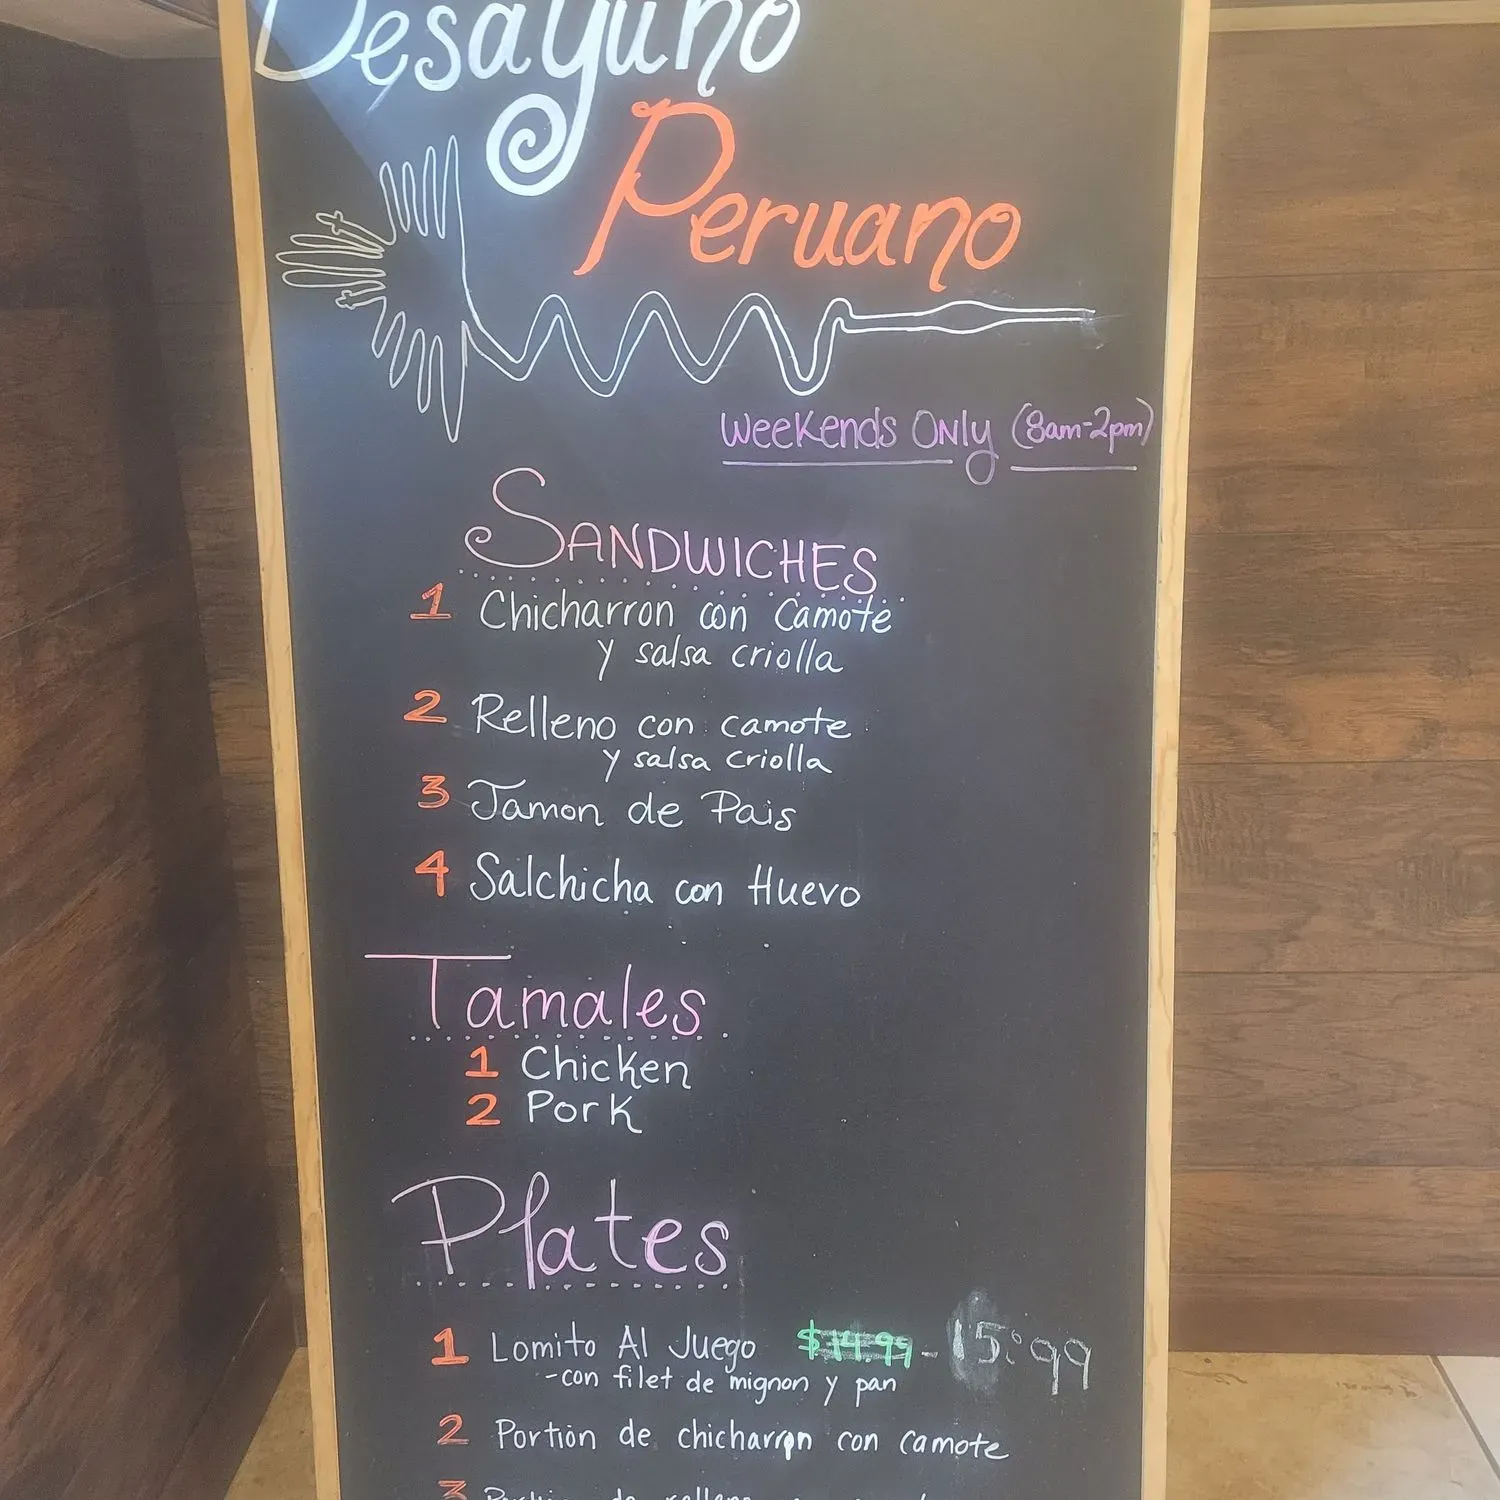 Desayuno
Peruano
Weekends Only (8am-2pm)
SANDWICHES
1 Chicharron con Camote
y salsa criolla
2 Relleno con camote
y salsa criolla
3 Jamon de Pais
4 Salchicha con Huevo
Tamales
1 Chicken
2 Pork
Plates
1 Lomito Al Juego $14.99 - 15.99
-con filet de mignon y pan
2 Portion de chicharron con camote
3 de relleno